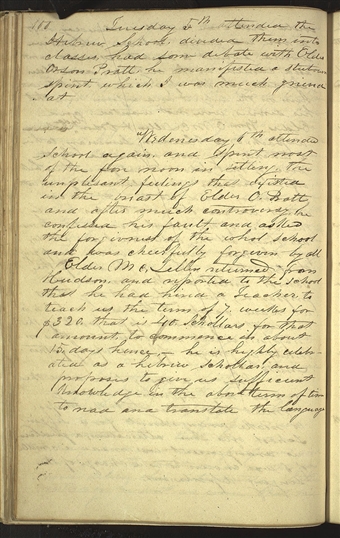 100 Tuesday 5th attended the
Hebrew School devided them into
classes, had som debate with Elder
Orson Pratt he manifested a stuborn
spirit which I was much grieved
at
Wednesday 6th attended
School again and spent most
of the fore noon in setling the
unplesant feelings that existed
in the breast of Elder O. Pratt
and after much controversy he
confessed his fault and asked
the forgivness of the whol school
and was cheerfully forgiven by all
Elder Mc.Lellin returned from
Hudson, and reported to the school
that he had hired a Teacher to
teach us the term of 7. weeks for
$320. that is 40 Schollars for that
amount, to commence in about
15, days hence,— he is highly celebr-
ated as a hebrew schollar, and
proposes to give us sufficient
knowledge in the above term of time
to read and translate the language